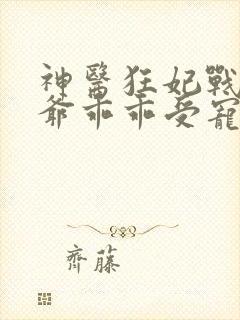 神醫狂妃戰
爺乖乖受寵
齊藤